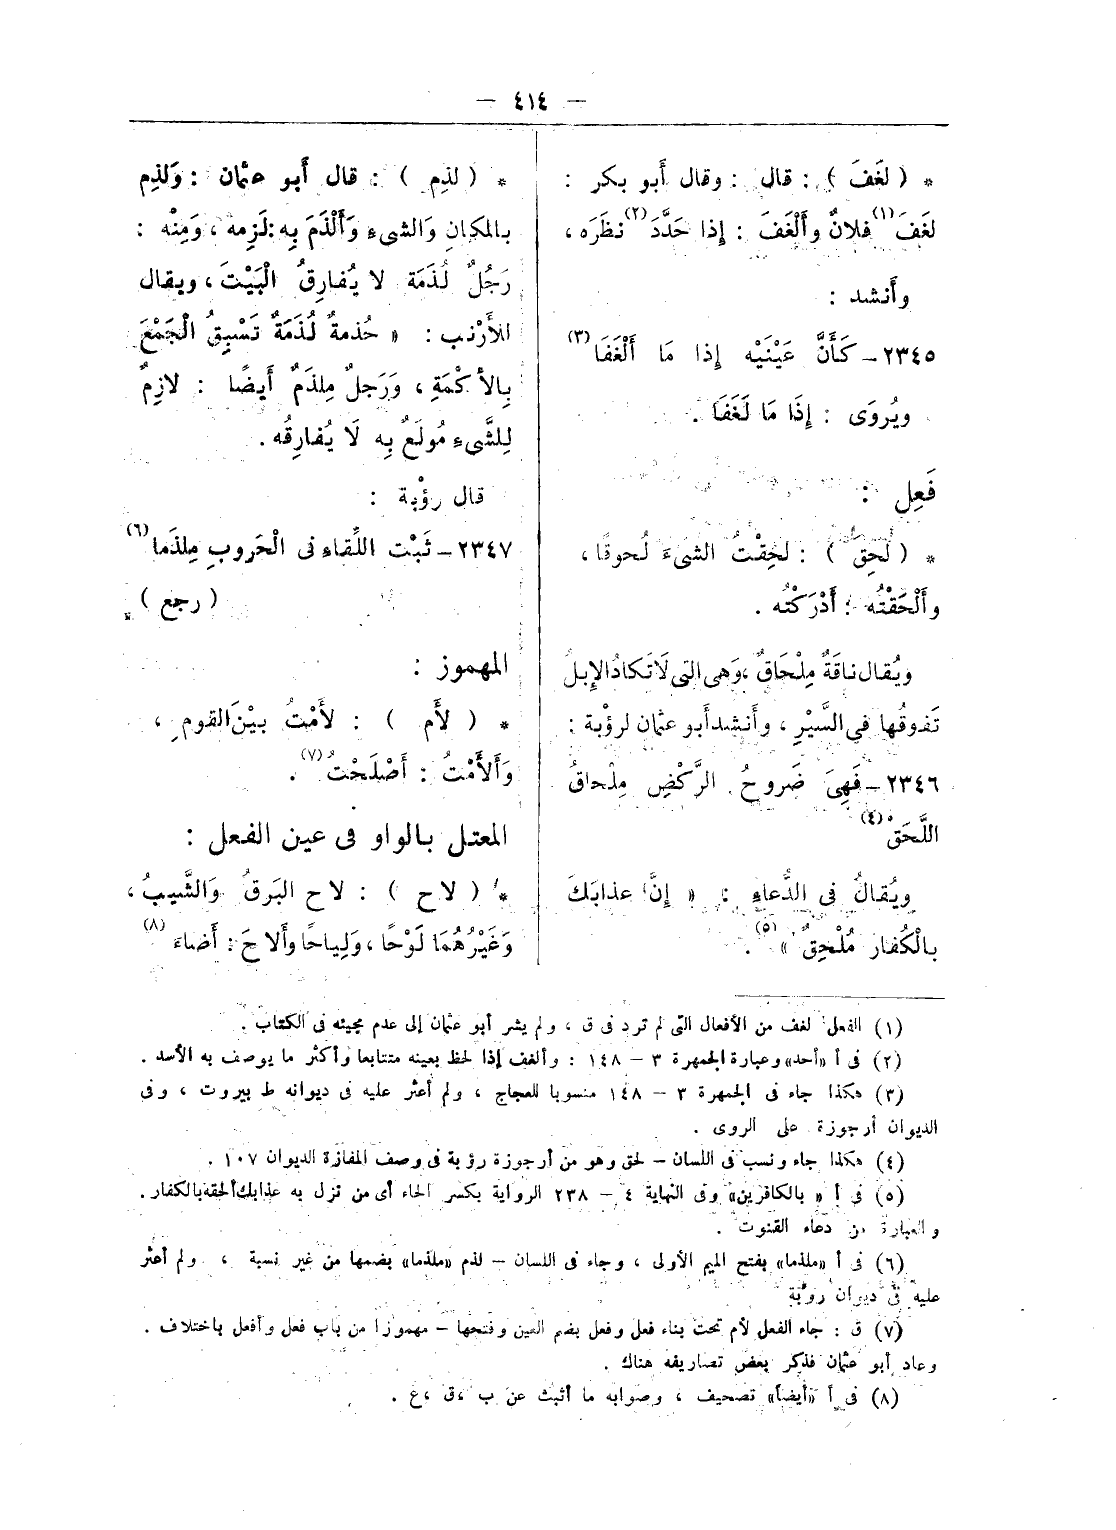 — ٤١٤ —
* ( لغَفَ ) : قال : وقال أبو بكر :
لغَفَ (١) فلانٌ وأَلْغَفَ : إذا حَدَّدَ (٢) نظَرَه ،
وأَنشد :
٢٣٤٥ – كَأَنَّ عَيْنَيْه إذا مَا أَلْغَفَا (٣)
ويُروَى : إذَا مَا لَغَفَا .
فَعِل :
* ( لَحِقَ ) : لحِقْتُ الشىءَ لُحوقًا ،
وأَلْحَقْتُه : أَدْرَكْتُه .
ويُقال ناقَةٌ مِلْحَاقٌ ، وَهى التى لَا تَكادُ الإِبلُ
تَفوقُها فى السَّيْرِ ، وأَنشد أبو عثمان لرؤبة :
٢٣٤٦ – فَهِىَ ضَروحُ الرَّكْضِ مِلْحاقُ
اللَّحَقْ (٤)
ويُقالُ فى الدُّعاءِ : « إنَّ عذابَكَ
بالْكُفار مُلْحِقٌ (٥) » .
* ( لذِم ) : قال أَبو عثمان : وَلذِم
بالمكانِ وَالشىءِ وَأَلْذَمَ بِه : لَزِمه ، وَمِنْه :
رَجُلٌ لُذَمَة لا يُفارِقُ الْبَيْتَ ، ويقال
للأَرْنبِ : « حُذمةٌ لُذَمَةٌ تَسْبِقُ الْجَمْعَ
بِالأكْمَةِ ، وَرَجلٌ مِلذَمٌ أَيضًا : لازِمٌ
لِلشَّىءِ مُولَعٌ بِه لَا يُفارِقُه .
قال رؤْبة :
٢٣٤٧ – ثَبْت اللِّقاءِ فى الْحَروبِ مِلذَما (٦)
( رجع )
المهموز :
* ( لأَم ) : لأَمْتُ بيْنَ القومِ ،
وَأَلأَمْتُ : أَصْلَحْتُ (٧) .
المعتل بالواو فى عين الفعل :
* ( لاح ) : لاح البَرقُ وَالشَّيبُ ،
وَغَيْرُهُمَا لَوْحًا ، وَلِياحًا وأَلاحَ : أَضاءَ (٨)
(١) الفعل لغف من الأفعال التى لم ترد فى ق ، ولم يشر أبو عثمان إلى عدم مجيئه فى الكتاب .
(٢) فى أ «أحد» وعبارة الجمهرة ٣ – ١٤٨ : وألغف إذا لحظ بعينه متتابعا وأكثر ما يوصف به الأسد .
(٣) هكذا جاء فى الجمهرة ٣ – ١٤٨ منسوبا للعجاج ، ولم أعثر عليه فى ديوانه ط بيروت ، وفى
الديوان أرجوزة على الروى .
(٤) هكذا جاء ونسب فى اللسان – لحق وهو من أرجوزة رؤبة فى وصف المفازة الديوان ١٠٧ .
(٥) فى أ « بالكافرين» وفى النهاية ٤ – ٢٣٨ الرواية بكسر الحاء أى من نزل به عذابك ألحقه بالكفار .
والعبارة من دعاء القنوت .
(٦) فى أ «ملذما» بفتح الميم الأولى ، وجاء فى اللسان – لذم «ملذما» بضمها من غير نسبة ، ولم أعثر
عليه فى ديوان رؤبة
(٧) ق : جاء الفعل لأم تحت بناء فعل وفعل بضم العين وفتحها – مهموزا من باب فعل وأفعل باختلاف .
وعاد أبو عثمان فذكر بعض تصاريفه هناك .
(٨) فى أ «أيضا» تصحيف ، وصوابه ما أثبت عن ب ، ق ، ع .